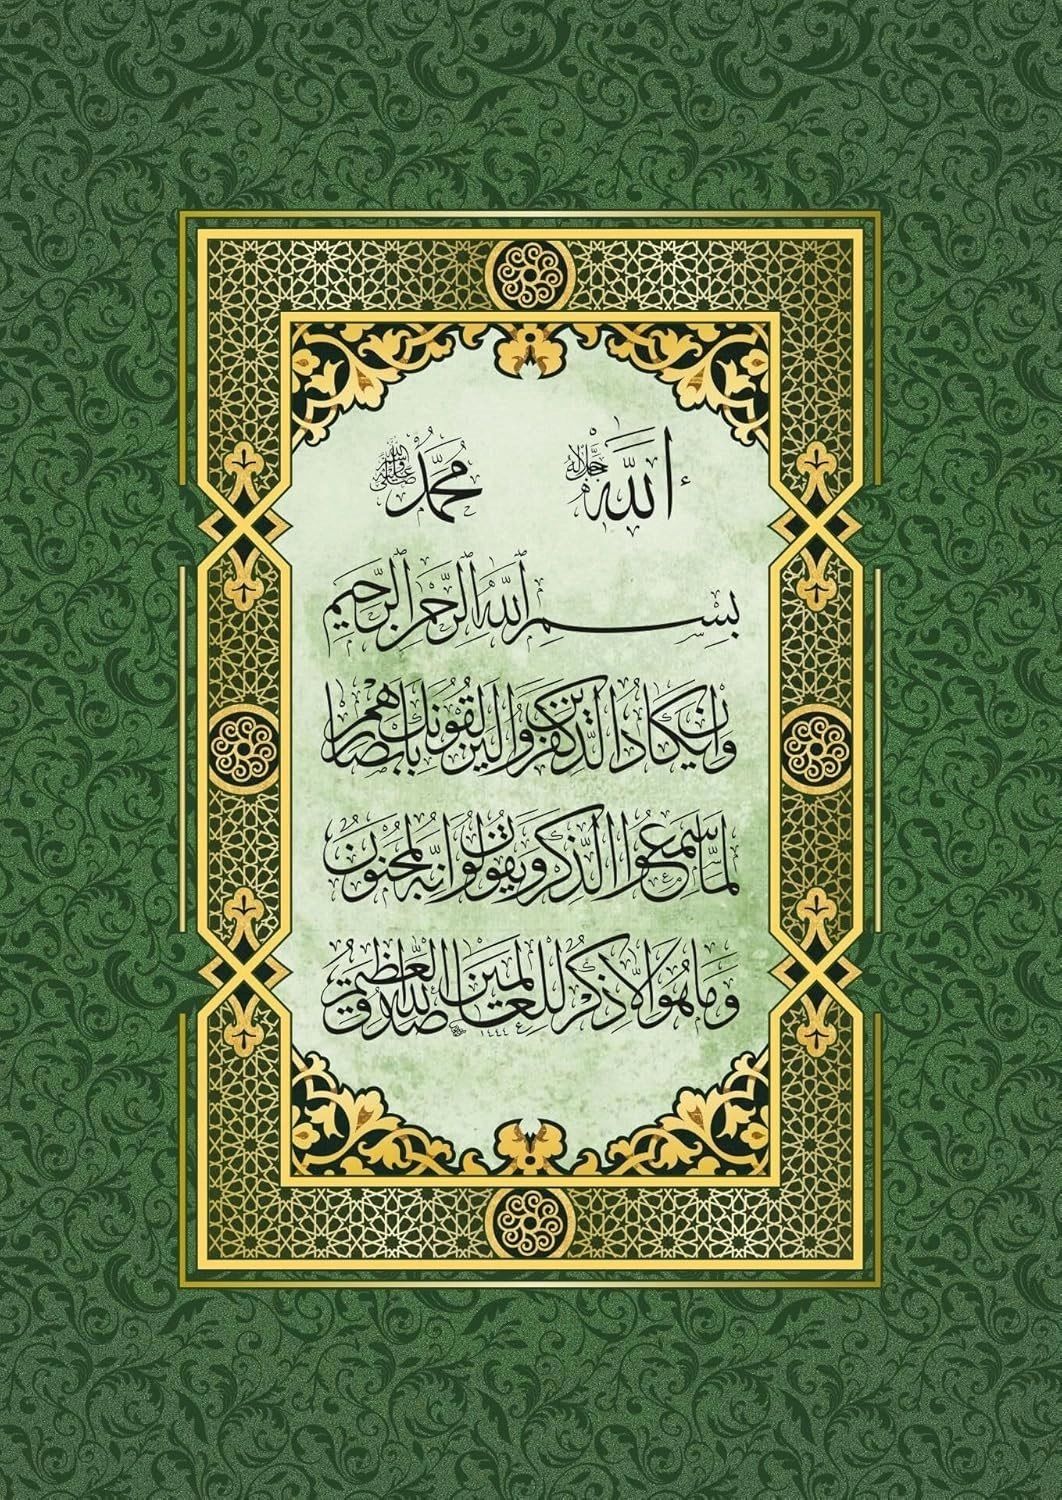 الله جل جلاله محمد صلى الله عليه وسلم
بسم الله الرحمن الرحيم
وان يكاد الذين كفروا ليزلقونك بابصارهم
لما سمعوا الذكر ويقولون انه لمجنون
وما هو الا ذكر للعالمين صدق الله العظيم
١٤٤٤